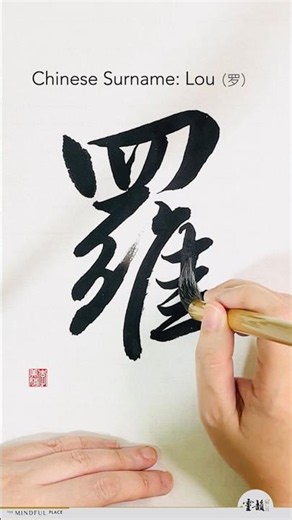 Chinese Surname: Lou (罗)
羅
THE MINDFUL PLACE